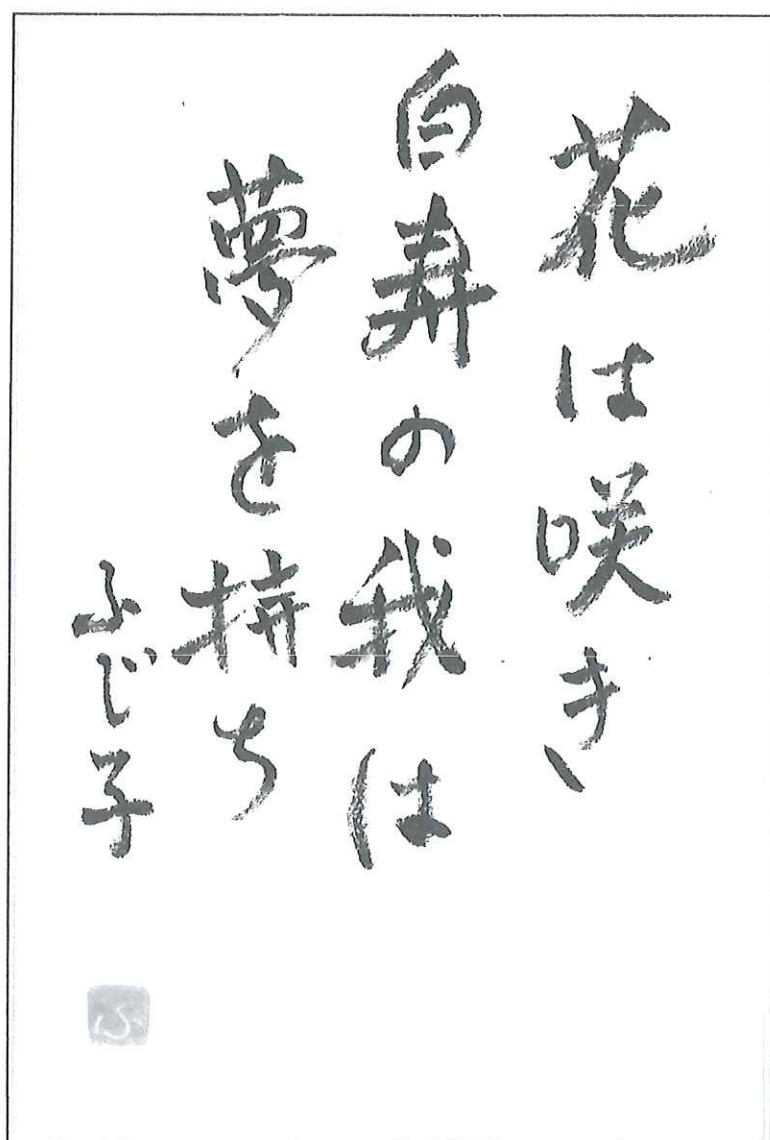 花は咲き
白寿の我は
夢を持ち
ふじ子
ふ